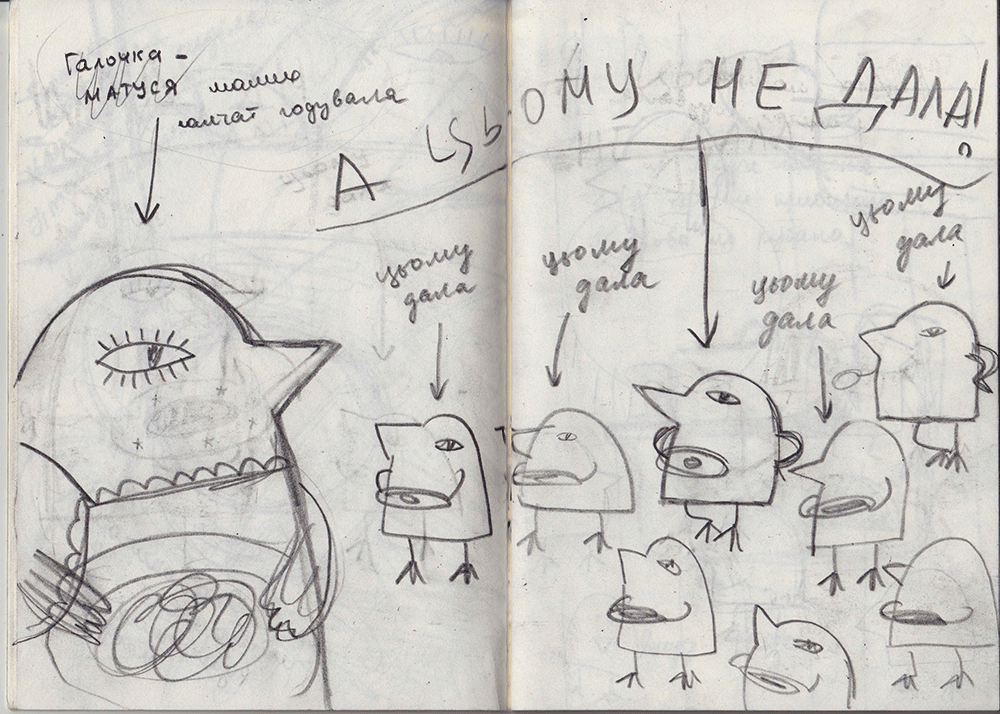 Галочка -
МАТУСЯ малих
галчат годувала
А ЦЬОМУ НЕ ДАЛА!
цьому
дала
цьому
дала
цьому
дала
цьому
дала